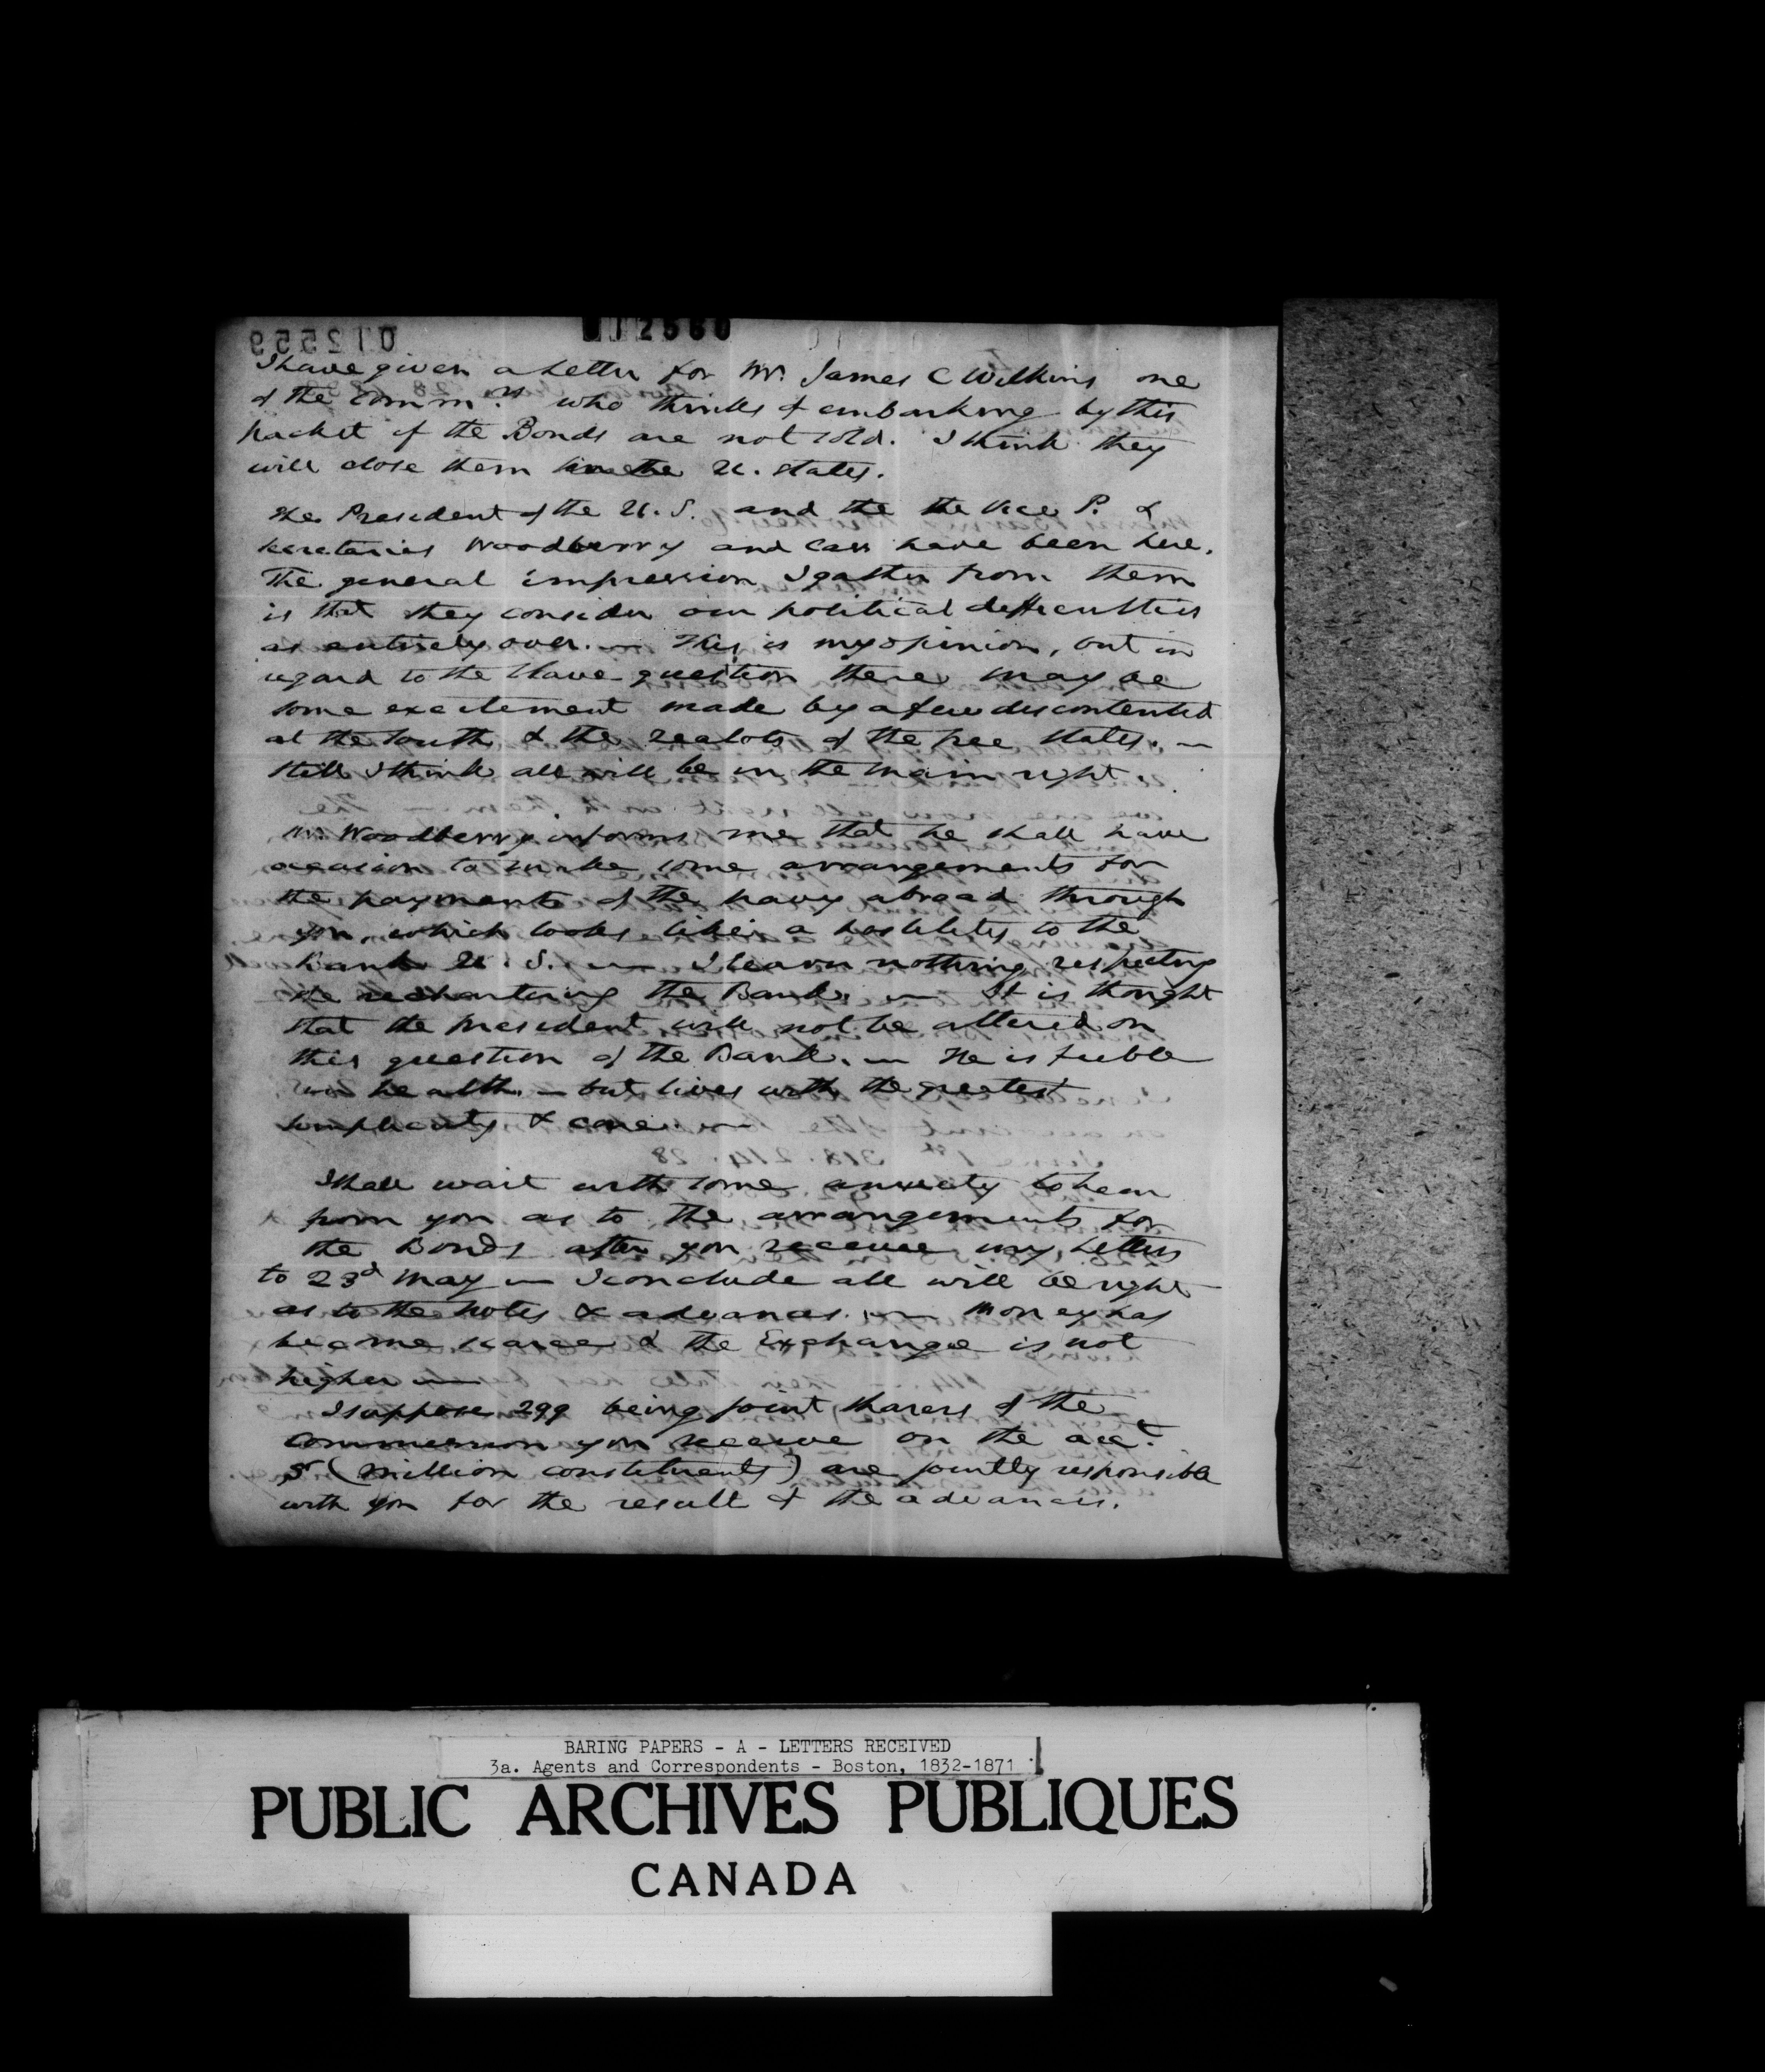 012560
I have given a Letter for Mr. James C Wilkins one
of the Comm.rs who thinks of embarking by this
packet if the Bonds are not sold. I think they
will close them in the U. States.
The President of the U. S. and the the Vice P. &
Secretaries Woodberry and Cass have been here.
The general impression I gather from them
is that they consider our political difficulties
as entirely over. — This is my opinion, but in
regard to the Slave question there may be
some excitement made by a few discontented
at the South & the zealots of the free States. —
Still I think all will be in the main right.
Mr Woodberry informs me that he shall have
occasion to make some arrangements for
the payments of the navy abroad through
you, which looks like a hostility to the
Bank U. S. — I learn nothing respecting
the rechartering the Bank. — It is thought
that the President will not be altered on
this question of the Bank. — He is feeble
in health — but lives with the greatest
simplicity & care. —
I shall wait with some anxiety to hear
from you as to the arrangements for
the Bonds after you receive my Letters
to 23d May — I conclude all will be right
as to the notes & advances. — Money has
become scarce & the Exchange is not
higher —
I suppose 299 being joint sharers of the
commission you receive on the acct.
(million constituents) are jointly responsible
with you for the result of the advances.
BARING PAPERS - A - LETTERS RECEIVED
3a. Agents and Correspondents - Boston, 1832-1871
PUBLIC ARCHIVES PUBLIQUES
CANADA